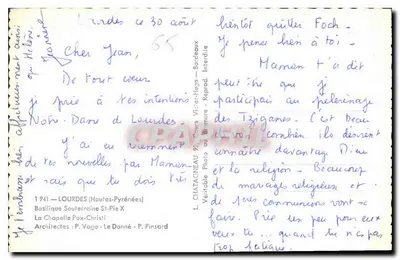 Lourdes ce 30 août
65
Cher Jean,
De tout coeur
je prie à tes intentions
Notre-Dame de Lourdes.
J'ai eu récemment
de tes nouvelles par Mamen
et sais que tu dois très
1941 — LOURDES (Hautes-Pyrénées)
Basilique Souterraine St-Pie X
La Chapelle Pax-Christi
Architectes : P. Vago - Le Donné - P. Pinsard
bientôt quitter Foch.
Je pense bien à toi.
Mamen t'a dit
peut être que je
participais au pèlerinage
des Tziganes. C'est beau
combien ils désirent
connaître davantage Dieu
et la religion. Beaucoup
de mariages religieux et
de 1res communions vont se
faire. Prie un peu pour eux
veux tu ... quand tu n'es pas
trop fatigué.
Je t'embrasse bien affectueusement ainsi
qu'Hélène.
L. CHATAGNEAU Bordeaux
Véritable Photo au Bromure - Reprod. Interdite